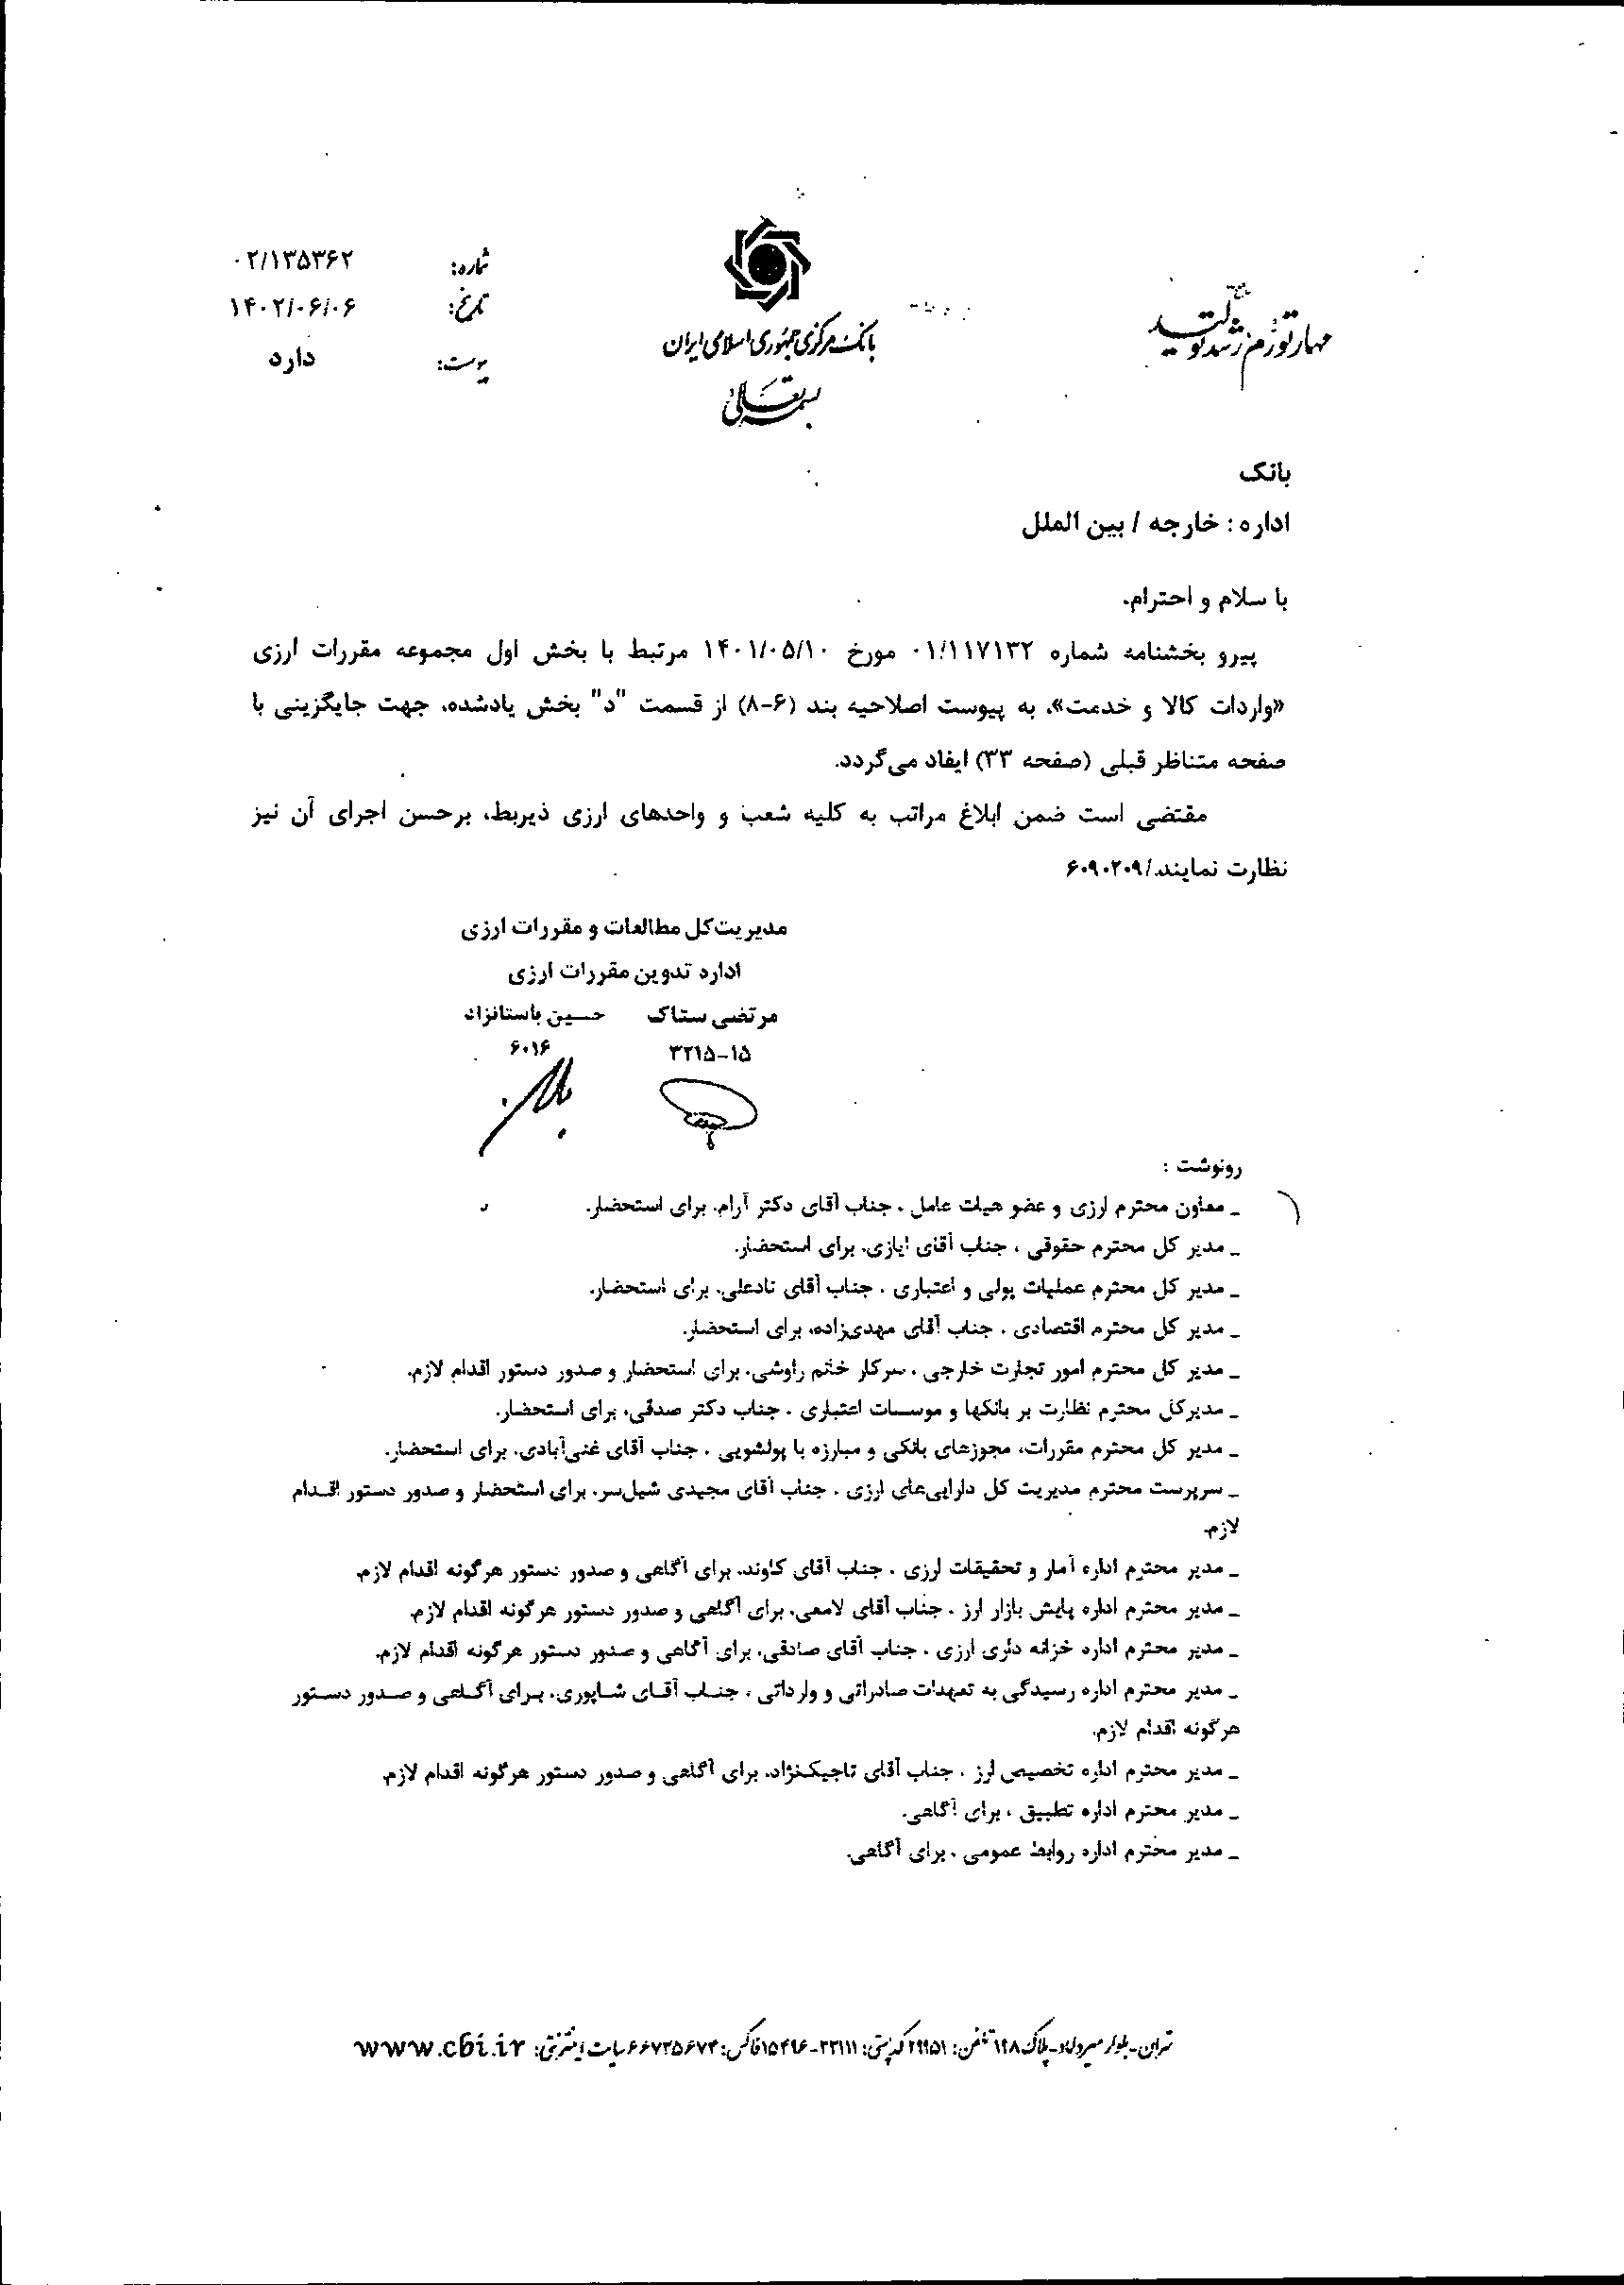 شماره: ۰۲/۱۳۵۳۶۲
تاریخ: ۱۴۰۲/۰۶/۰۶
پیوست: دارد
بانک مرکزی جمهوری اسلامی ایران
بسمه تعالی
مهار تورم، رشد تولید
بانک
اداره : خارجه / بین الملل
با سلام و احترام.
پیرو بخشنامه شماره ۰۱/۱۱۷۱۳۲ مورخ ۱۴۰۱/۰۵/۱۰ مرتبط با بخش اول مجموعه مقررات ارزی
«واردات کالا و خدمت»، به پیوست اصلاحیه بند (۶-۸) از قسمت "د" بخش یادشده، جهت جایگزینی با
صفحه متناظر قبلی (صفحه ۳۳) ایفاد می‌گردد.
مقتضی است ضمن ابلاغ مراتب به کلیه شعب و واحدهای ارزی ذیربط، برحسن اجرای آن نیز
نظارت نمایند./۶۰۹۰۲۰۹
مدیریت‌کل مطالعات و مقررات ارزی
اداره تدوین مقررات ارزی
مرتضی ستاک حسین باستانزاد
۳۲۱۵-۱۵ ۶۰۱۶
رونوشت :
_ معاون محترم ارزی و عضو هیات عامل ، جناب آقای دکتر آرام، برای استحضار.
_ مدیر کل محترم حقوقی ، جناب آقای ایازی، برای استحضار.
_ مدیر کل محترم عملیات پولی و اعتباری ، جناب آقای نادعلی، برای استحضار.
_ مدیر کل محترم اقتصادی ، جناب آقای مهدی‌زاده، برای استحضار.
_ مدیر کل محترم امور تجارت خارجی ، سرکار خانم راوشی، برای استحضار و صدور دستور اقدام لازم.
_ مدیرکل محترم نظارت بر بانکها و موسسات اعتباری ، جناب دکتر صدقی، برای استحضار.
_ مدیر کل محترم مقررات، مجوزهای بانکی و مبارزه با پولشویی ، جناب آقای غنی‌آبادی، برای استحضار.
_ سرپرست محترم مدیریت کل دارایی‌های ارزی ، جناب آقای مجیدی شیل‌سر، برای استحضار و صدور دستور اقدام
لازم.
_ مدیر محترم اداره آمار و تحقیقات ارزی ، جناب آقای کاوند، برای آگاهی و صدور دستور هرگونه اقدام لازم.
_ مدیر محترم اداره پایش بازار ارز ، جناب آقای لامعی، برای آگاهی و صدور دستور هرگونه اقدام لازم.
_ مدیر محترم اداره خزانه داری ارزی ، جناب آقای صادقی، برای آگاهی و صدور دستور هرگونه اقدام لازم.
_ مدیر محترم اداره رسیدگی به تعهدات صادراتی و وارداتی ، جناب آقای شاپوری، برای آگاهی و صدور دستور
هرگونه اقدام لازم.
_ مدیر محترم اداره تخصیص ارز ، جناب آقای تاجیک‌نژاد، برای آگاهی و صدور دستور هرگونه اقدام لازم.
_ مدیر محترم اداره تطبیق ، برای آگاهی.
_ مدیر محترم اداره روابط عمومی ، برای آگاهی.
تهران-بلوار میرداماد-پلاک ۱۹۸ تلفن: ۲۹۹۵۱ کد پستی: ۳۳۱۱۱-۱۵۴۹۶ فاکس: ۶۶۷۳۵۶۷۴ سایت اینترنتی: www.cbi.ir